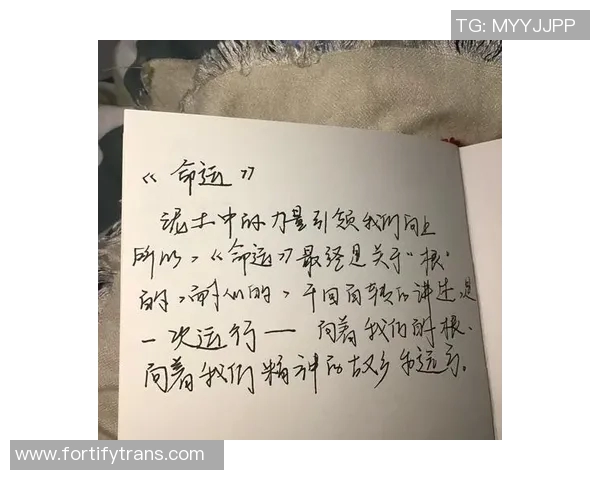 TG: MYYJJPP
《命运》
泥土中的力量引领我们向上
所以,《命运》最终是关于"根"
的,耐人的,千回百转的讲述,是
一次运行——向着我们的根、
向着我们精神的故乡和远方。
www.fortifytrans.com